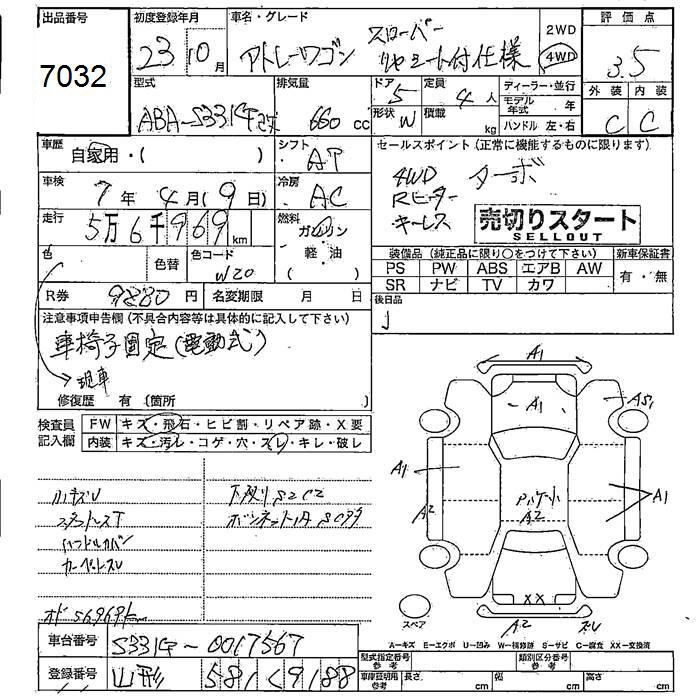 出品番号
7032
初度登録年月
23 10月
車名・グレード
アトレーワゴン スローパー
リヤシート付仕様
2WD
4WD
評価点
3.5
外装 内装
C C
型式
ABA-S331G
排気量
660 cc
ドア 5
形状 W
定員 4人
積載 kg
ディーラー・並行
モデル年式 年
ハンドル 左・右
車歴 自家用・( )
シフト AT
セールスポイント(正常に機能するものに限ります)
4WD ターボ
Rヒーター
キーレス
売切りスタート
SELLOUT
車検 7年4月(9日)
冷房 AC
走行 5万6千969km
燃料 ガソリン
軽・油
( )
色
色替
色コード W20
装備品(純正品に限り○をつけて下さい)
新車保証書
PS PW ABS エアB AW
SR ナビ TV カワ
有・無
R券 9880円
名変期限 月 日
後日品
注意事項申告欄(不具合内容等は具体的に記入して下さい)
車椅子固定(電動式)
現車
修復歴 有 〔箇所 〕
検査員記入欄
FW キズ・飛石・ヒビ割・リペア跡・X要
内装 キズ・汚レ・コゲ・穴・スレ・キレ・破レ
小キズU
スタットレスT
ハンドルカバー
カーペットスレ
下廻りS2C2
オド56969k
A1
A1
AS1
A1
A2
A1
A2
XX
A2
スレ
スペア
A-キズ E-エクボ U-凹み W-補修跡 S-サビ C-腐食 XX-交換済
車台番号 S331G-0017567
登録番号 山形 581 く 9188
型式指定番号 参考
類別区分番号 参考
車庫証明用 参考
長さ cm 幅 cm 高さ cm